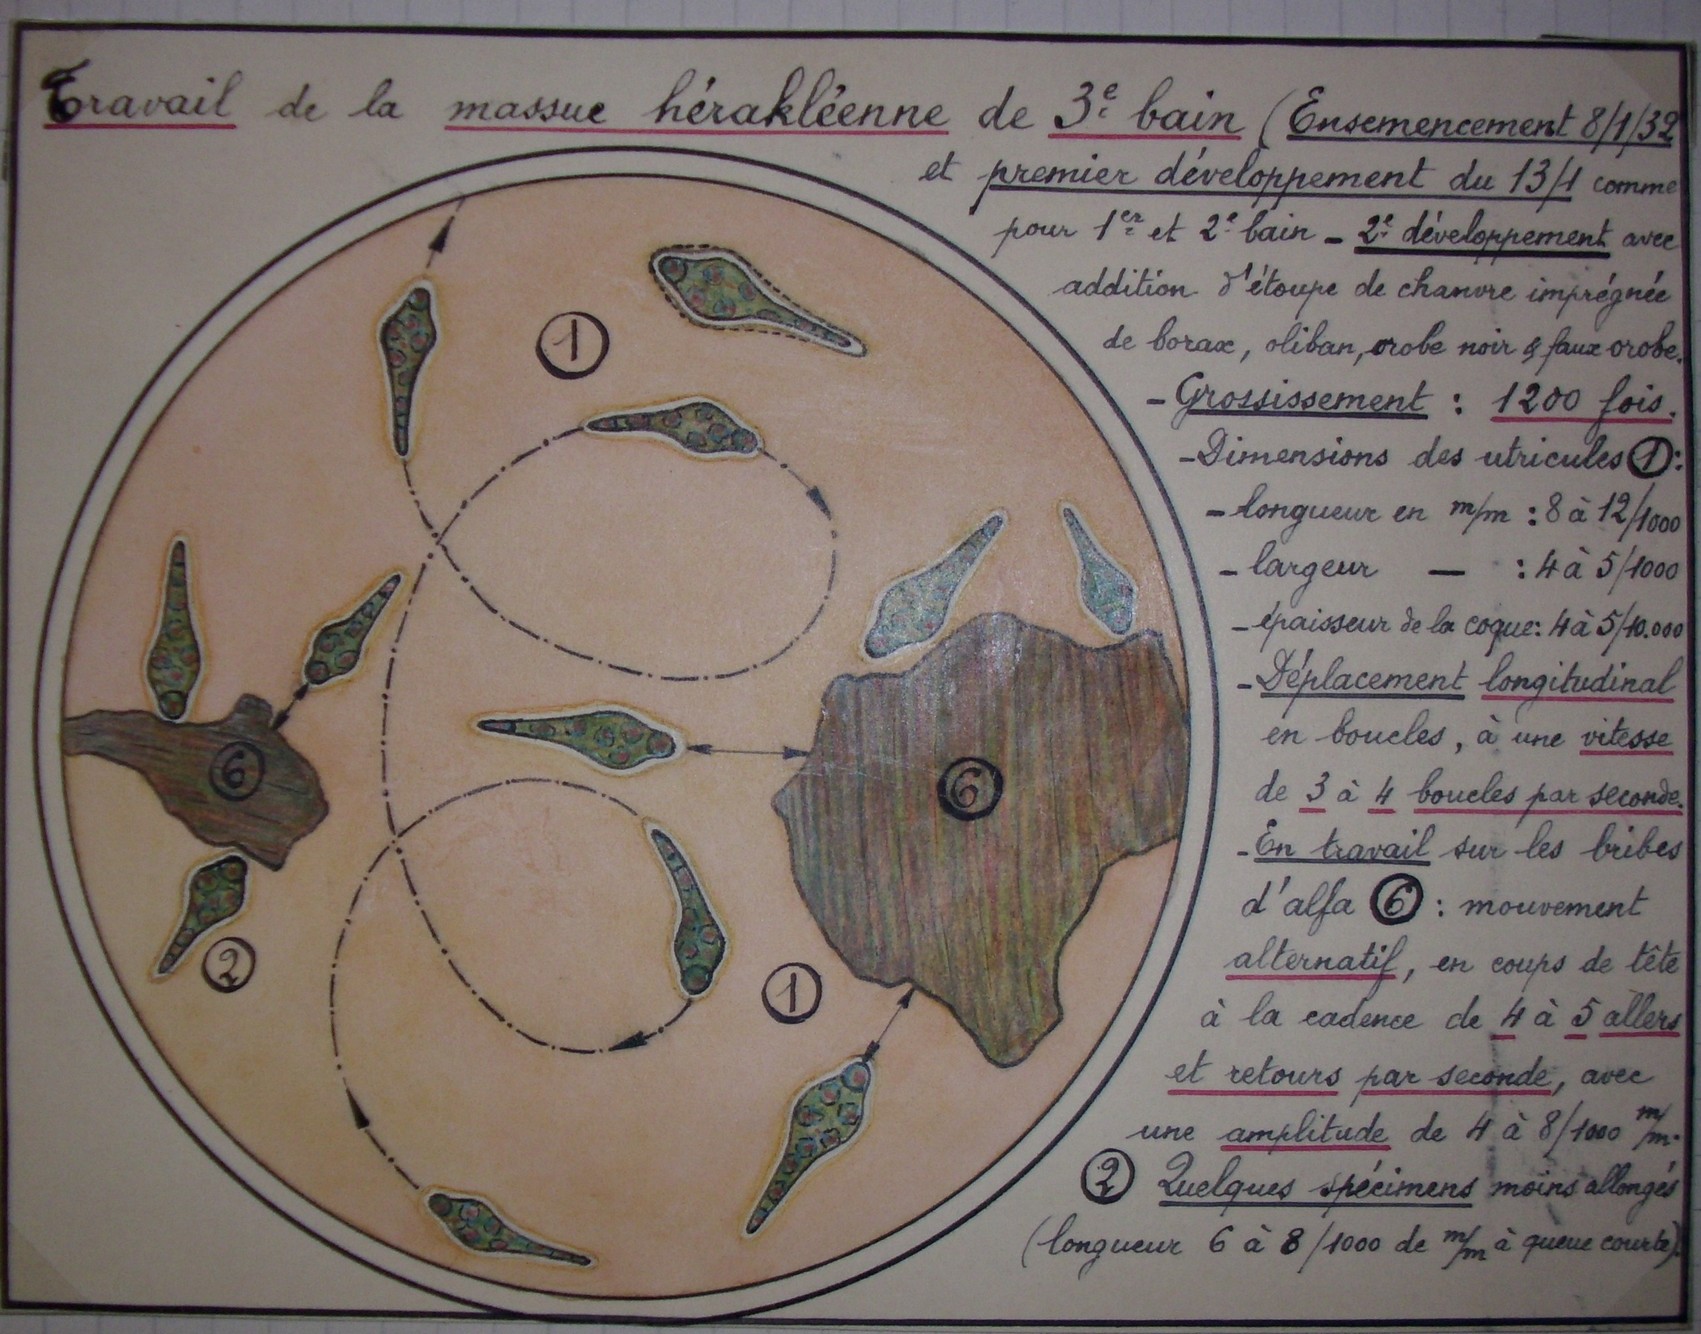 Travail de la massue hérakléenne de 3e bain (Ensemencement 8/1/32
et premier développement du 13/1 comme
pour 1er et 2e bain - 2e développement avec
addition d'étoupe de chanvre imprégnée
de borax, oliban, orobe noir & faux orobe.
- Grossissement : 1200 fois.
- Dimensions des utricules 1 :
- longueur en m/m : 8 à 12/1000
- largeur — : 4 à 5/1000
- épaisseur de la coque : 4 à 5/10.000
- Déplacement longitudinal
en boucles, à une vitesse
de 3 à 4 boucles par seconde.
- En travail sur les bribes
d'alfa 6 : mouvement
alternatif, en coups de tête
à la cadence de 4 à 5 allers
et retours par seconde, avec
une amplitude de 4 à 8/1000 m/m.
2 Quelques spécimens moins allongés
(longueur 6 à 8/1000 de m/m à queue courte).
1
6
6
2
1